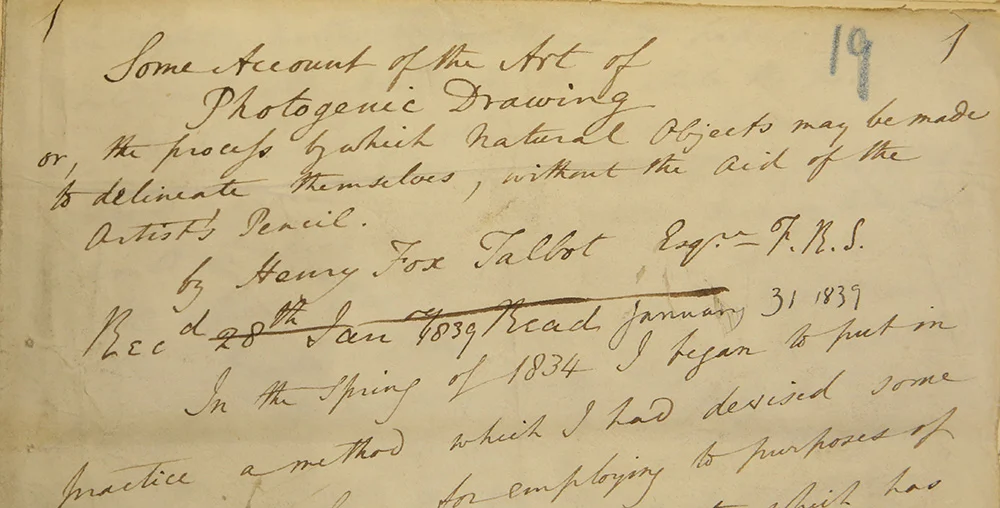 1
19
1
Some Account of the Art of
Photogenic Drawing
or, the process by which Natural Objects may be made
to delineate themselves, without the Aid of the
Artist's Pencil.
by Henry Fox Talbot Esqre F.R.S.
Recd 28th Jany 1839 Read January 31 1839
In the Spring of 1834 I began to put in
practice a method which I had devised some
for employing to purposes of
which has